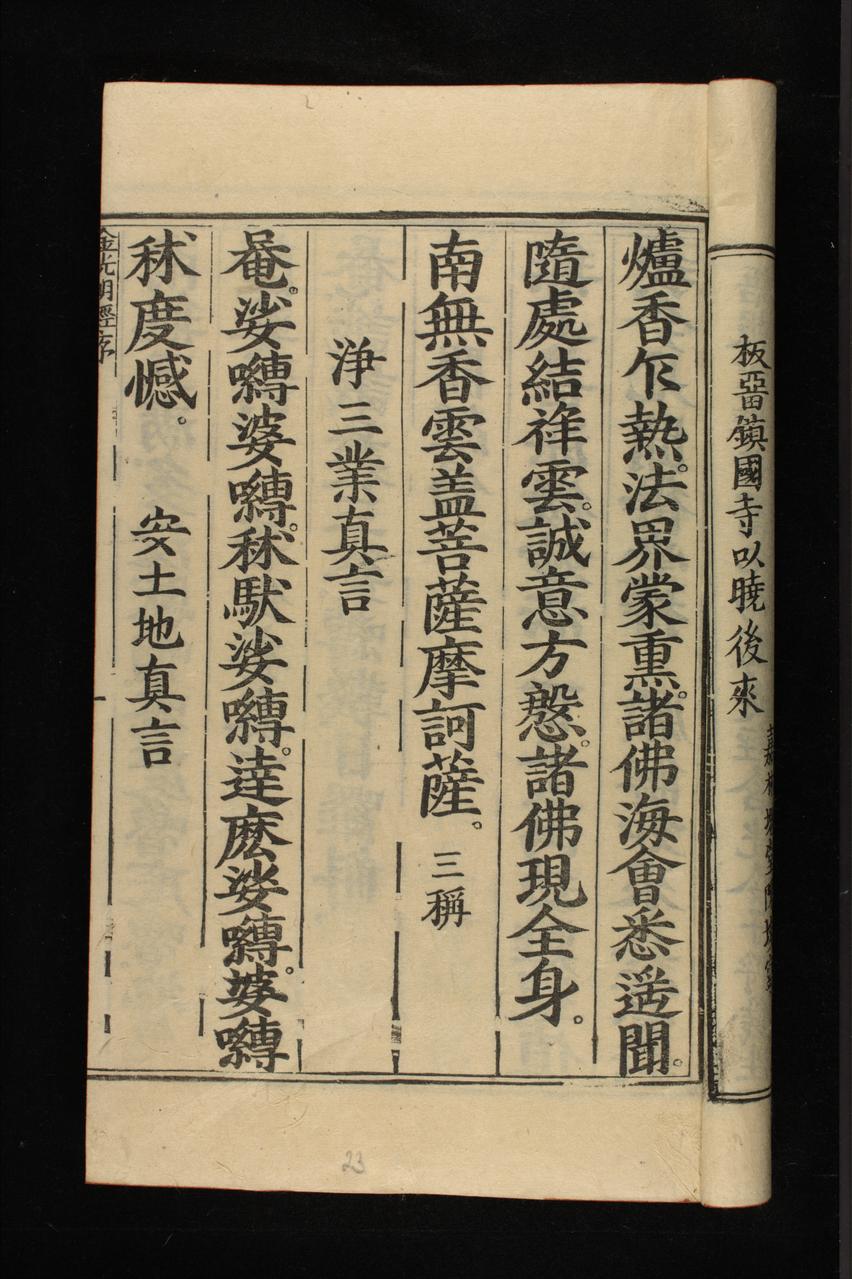 板畱鎮國寺以曉後來
爐香乍熱。法界蒙熏。諸佛海會悉遥聞。
隨處結祥雲。誠意方慇。諸佛現全身。
南無香雲盖菩薩摩訶薩。三稱
淨三業真言
唵。娑嚩婆嚩。秫馱娑嚩。達麽娑嚩。婆嚩
秫度憾。安土地真言
金光明經序
一
23